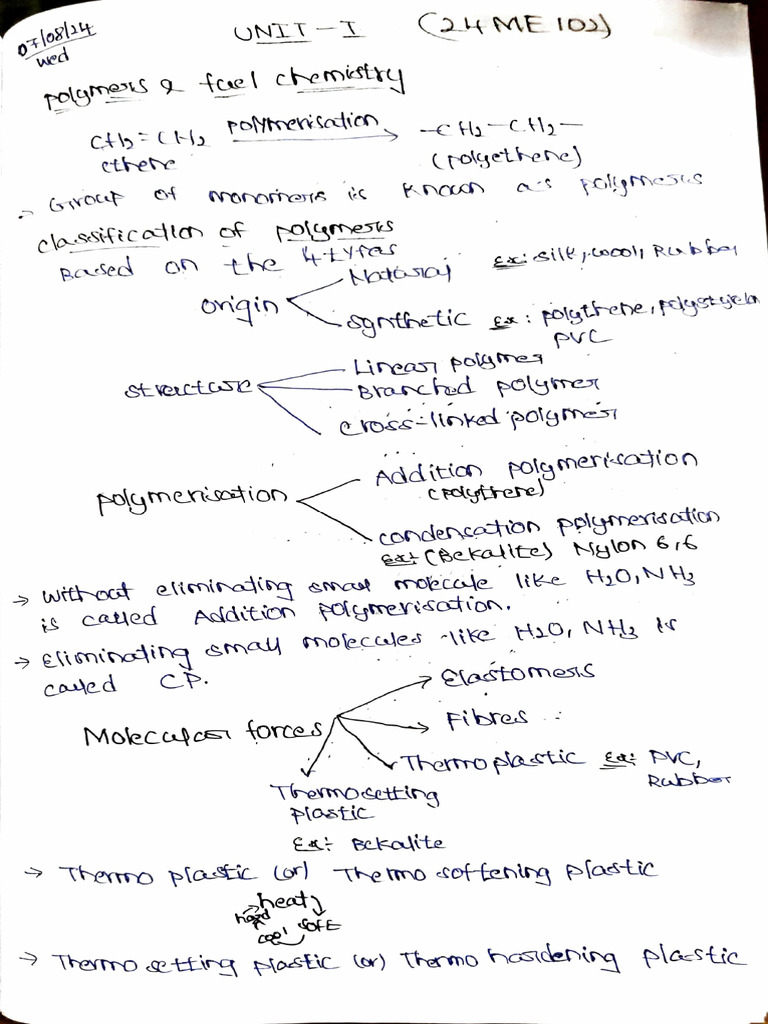 07/08/24
wed
UNIT-I (24ME102)
polymers & fuel chemistry
CH2=CH2 polymerisation -CH2-CH2-
ethene (polyethene)
Group of monomers is known as polymers
classification of polymers
Based on the 4-types
Natural Ex: silk, wool, Rubber
origin
synthetic Ex: polythene, polystyrene
PVC
Linear polymer
structure Branched polymer
cross-linked polymer
Addition polymerisation
(polythene)
polymerisation
condencation polymerisation
Ex: (Bekalite) Nylon 6,6
→ without eliminating small molecule like H2O, NH3
is called Addition polymerisation.
→ Eliminating small molecules like H2O, NH3 is
called CP.
Elastomers
Molecular forces Fibres
Thermoplastic Ex: PVC,
Rubber
Thermosetting
plastic
Ex: Bekalite
→ Thermo plastic (or) Thermo softening plastic
heat
hard soft
cool
→ Thermo setting plastic (or) Thermo hardening plastic